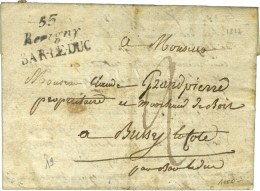 55
Revigny
BAR-LE-DUC
a Monsieur
Claude Grandpierre
propriétaire et marchand de Bois
a Bussy la Cote
par Bar le Duc
2